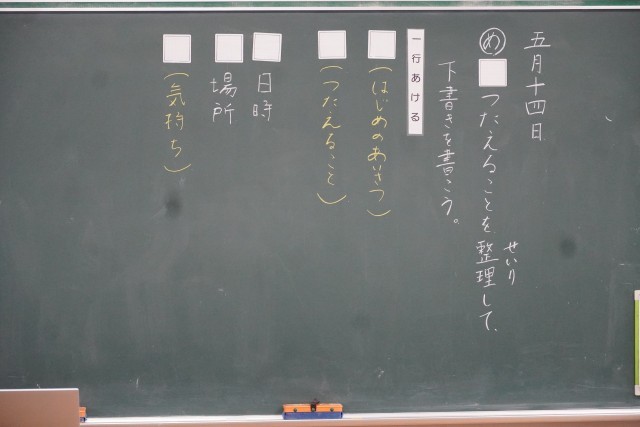 五月十四日
め つたえることを整理して、
せいり
下書きを書こう。
一行あける
(はじめのあいさつ)
(つたえること)
日時
場所
(気持ち)